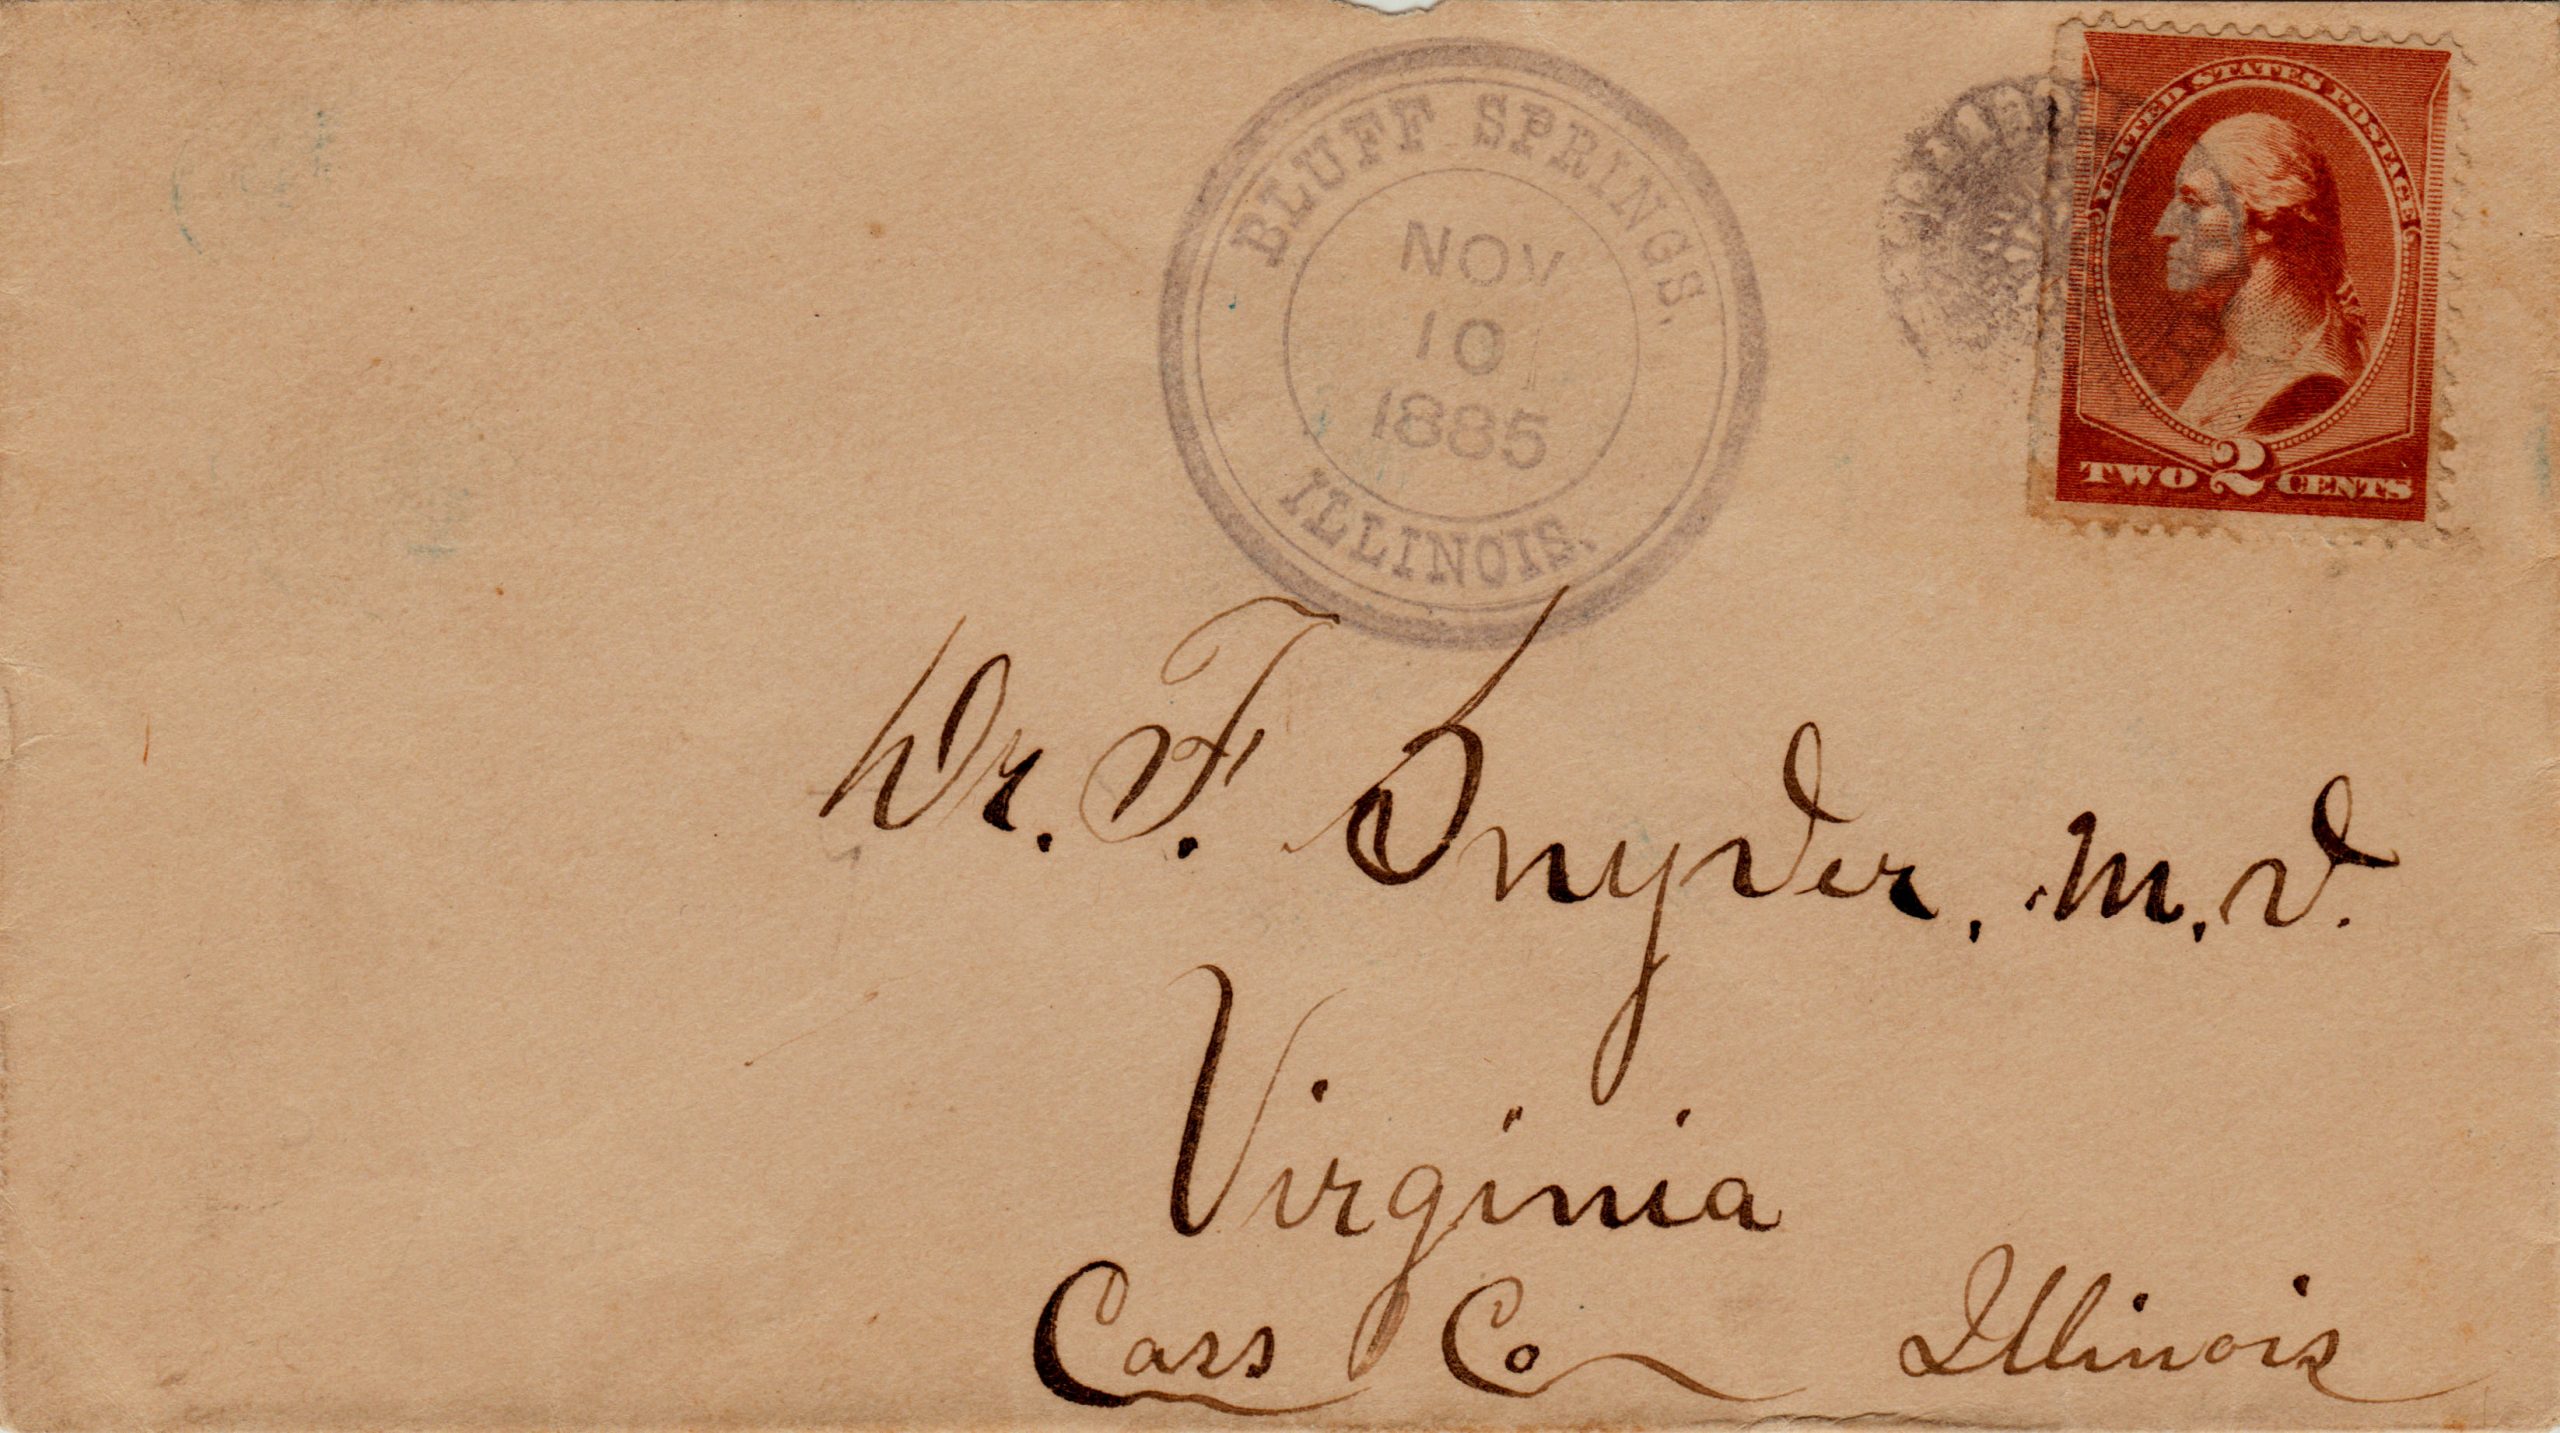 BLUFF SPRINGS,
NOV
10
1885
ILLINOIS.
UNITED STATES POSTAGE
TWO 2 CENTS
Dr. F. Snyder, M.D.
Virginia
Cass Co Illinois